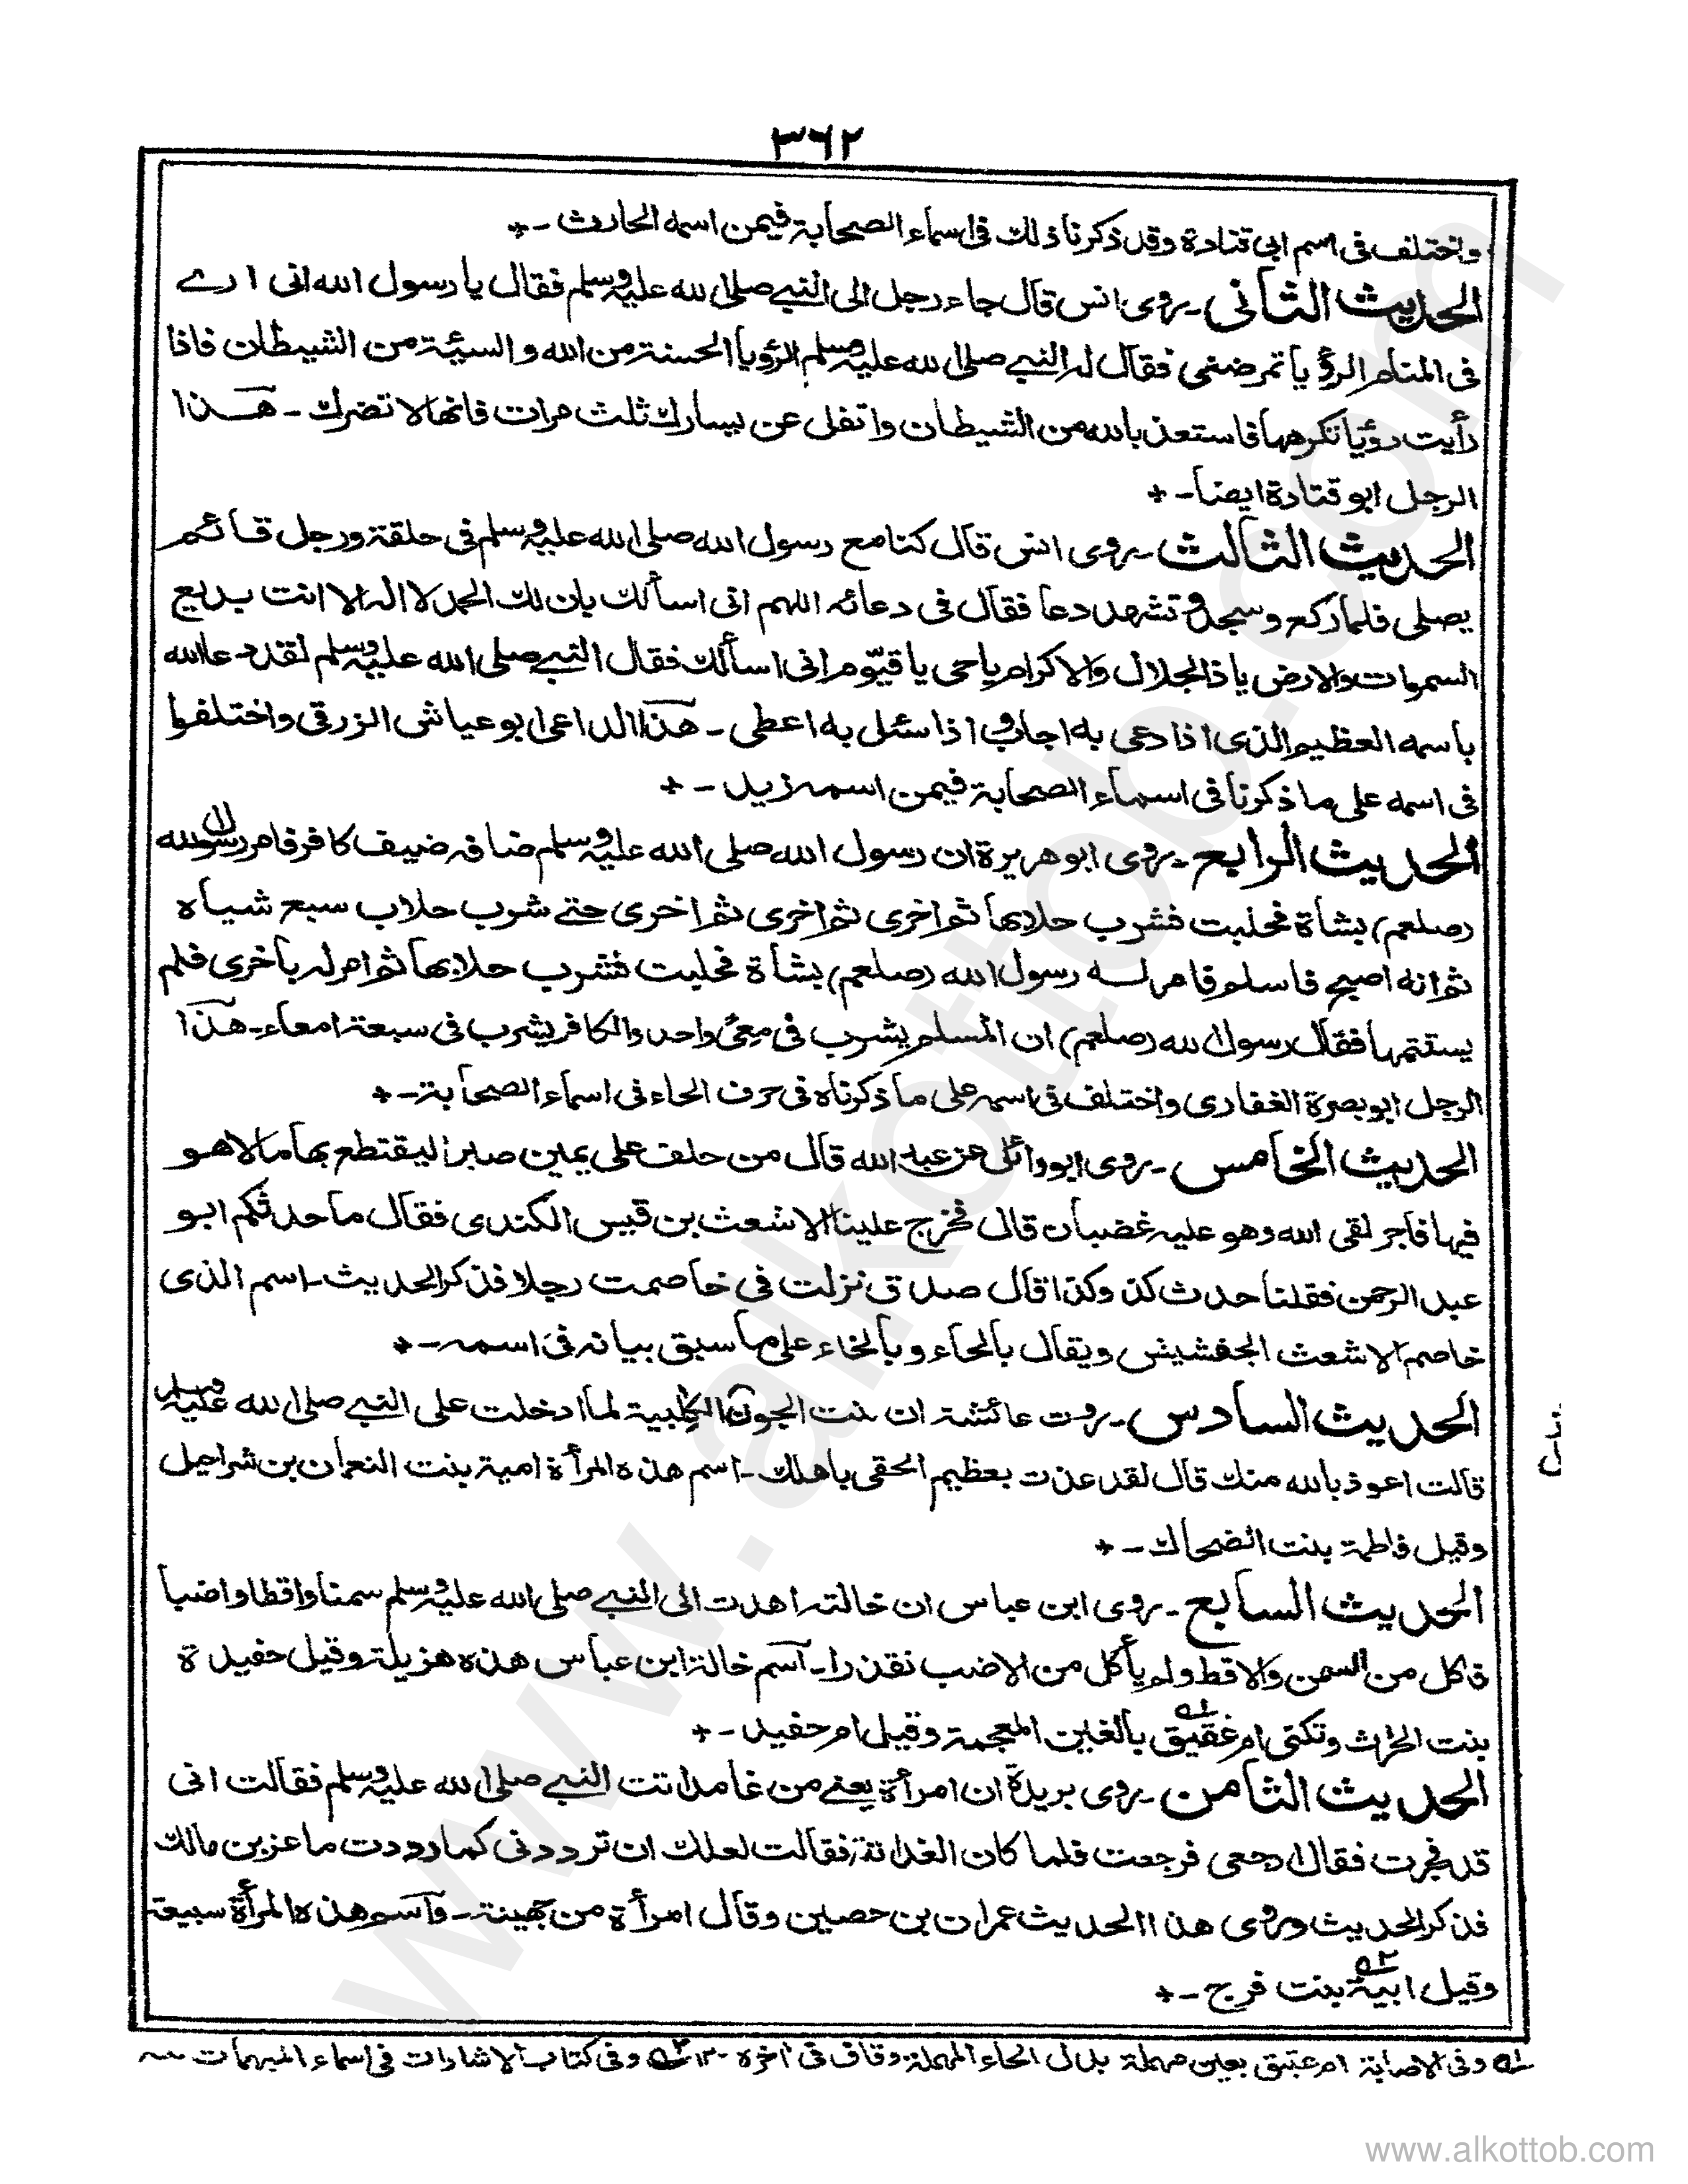 ٣٦٢
واختلف فی اسم ابی قتادة وقد ذکرنا ذلك فی اسماء الصحابة فیمن اسمه الحارث ـ٭
الحدیث الثانی ـ روی انس قال جاء رجل الی النبی صلی الله علیه وسلم فقال یا رسول الله انی اری
فی المنام الرؤیا تمرضنی فقال له النبی صلی الله علیه وسلم الرؤیا الحسنة من الله والسیئة من الشیطان فاذا
رأیت رؤیا تکرهها فاستعذ بالله من الشیطان واتفل عن یسارك ثلث مرات فانها لا تضرك ـ هذا
الرجل ابو قتادة ایضا ـ٭
الحدیث الثالث ـ روی انس قال کنا مع رسول الله صلی الله علیه وسلم فی حلقة ورجل قائم
یصلی فلما رکع وسجد وتشهد دعا فقال فی دعائه اللهم انی اسألك بان لك الحمد لا اله الا انت بدیع
السموات والارض یا ذا الجلال والاکرام یا حی یا قیّوم انی اسألك فقال النبی صلی الله علیه وسلم لقد دعا الله
باسمه العظیم الذی اذا دعی به اجاب و اذا سئل به اعطی ـ هذا الداعی ابو عیاش الزرقی واختلفوا
فی اسمه علی ما ذکرنا فی اسماء الصحابة فیمن اسمه زید ـ٭
الحدیث الرابع ـ روی ابو هریرة ان رسول الله صلی الله علیه وسلم ضافه ضیف کافر فامر رسول الله
(صلعم) بشاة فحلبت فشرب حلابها ثم اخری ثم اخری ثم اخری حتی شرب حلاب سبع شیاه
ثم انه اصبح فاسلم فامر له رسول الله (صلعم) بشاة فحلبت فشرب حلابها ثم امر له باخری فلم
یستتمها فقال رسول الله (صلعم) ان المسلم یشرب فی معیً واحد والکافر یشرب فی سبعة امعاء ـ هذا
الرجل ابو بصرة الغفاری واختلف فی اسمه علی ما ذکرناه فی حرف الحاء فی اسماء الصحابة ـ٭
الحدیث الخامس ـ روی ابو وائل عن عبد الله قال من حلف علی یمین صابرا لیقتطع بها مالا هو
فیها فاجر لقی الله وهو علیه غضبان قال فخرج علینا الاشعث بن قیس الکندی فقال ما حدثکم ابو
عبد الرحمن فقلنا حدث کذا وکذا قال صدق نزلت فی خاصمت رجلا فذکر الحدیث ـ اسم الذی
خاصم الاشعث الجفشیش ویقال بالحاء وبالخاء علی ما سبق بیانه فی اسمه ـ٭
الحدیث السادس ـ روت عائشة ان بنت الجون الکلبیة لما ادخلت علی النبی صلی الله علیه وسلم
قالت اعوذ بالله منك قال لقد عذت بعظیم الحقی باهلك ـ اسم هذه المرأة امیة بنت النعمان بن شراحیل
وقیل فاطمة بنت الضحاك ـ٭
الحدیث السابع ـ روی ابن عباس ان خالته اهدت الی النبی صلی الله علیه وسلم سمنا واقطا واضبا
فاکل من السمن والاقط ولم یأکل من الاضب نقذرا ـ اسم خالة ابن عباس هذه هزیلة وقیل حفیدة
بنت الحارث وتکنی ام غقیق ١ه بالغین المعجمة وقیل ام حفید ـ٭
الحدیث الثامن ـ روی بریدة ان امرأة یعنی من غامد اتت النبی صلی الله علیه وسلم فقالت انی
قد فجرت فقال ارجعی فرجعت فلما کان الغد اتته فقالت لعلك ان ترددنی کما رددت ماعز بن مالك
فذکر الحدیث وروی هذا الحدیث عمران بن حصین وقال امرأة من جهینة ـ واسم هذه المرأة سبیعة
وقیل ابیة ٢ه بنت فرج ـ٭
١ه وفی الاصابة ام عتیق بعین مهملة بدل الحاء المهملة وقاف فی اخره ١٢ ٢ه وفی کتاب الاشارات فی اسماء المبهمات
www.alkottob.com
www.alkottob.com